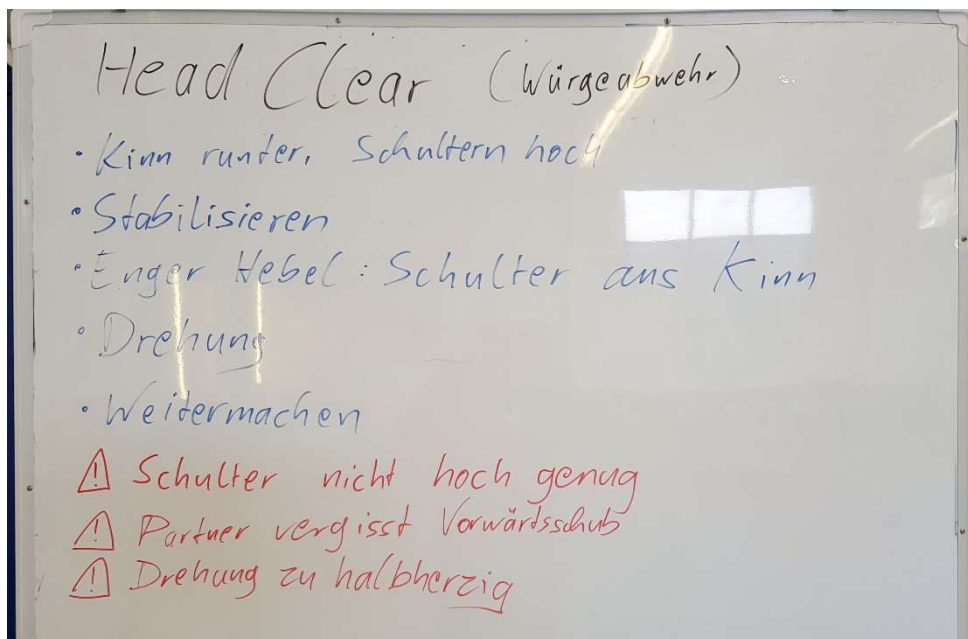 Head Clear (Würgeabwehr)
• Kinn runter, Schultern hoch
• Stabilisieren
• Enger Hebel: Schulter ans Kinn
• Drehung
• Weitermachen
⚠ Schulter nicht hoch genug
⚠ Partner vergisst Vorwärtsschub
⚠ Drehung zu halbherzig